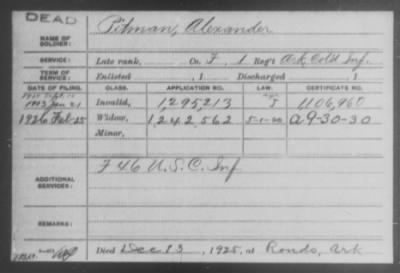 DEAD
Pitman, Alexander
NAME OF SOLDIER:
SERVICE: Late rank, Co. F, 1 Reg't Ark Cold Inf.
TERM OF SERVICE: Enlisted , 1 Discharged , 1
DATE OF FILING. CLASS. APPLICATION NO. LAW. CERTIFICATE NO.
1903 Jan 21 Invalid, 1,295,213 1106,960
1926 Feb 25 Widow, 1,242,562 5-1-20 a 9-30-30
Minor,
ADDITIONAL SERVICES: F 46 U.S.C. Inf
REMARKS:
Died Dec 13, 1925, at Rondo, Ark